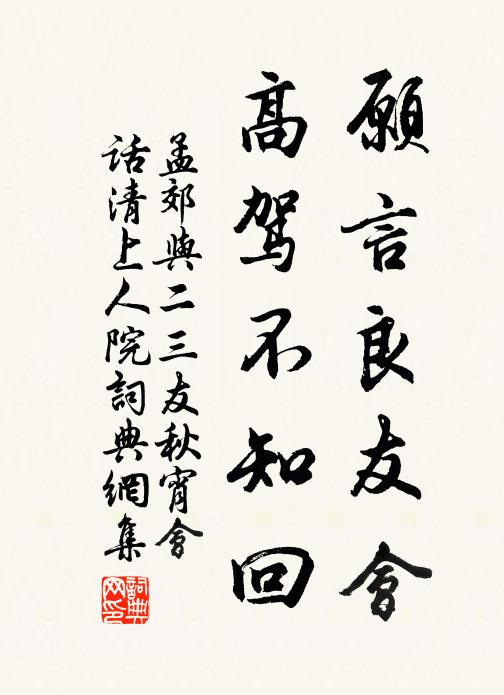 願言良友會
高駕不知回
孟郊與二三友秋宵會
話清上人院詞典網集
詞典网印